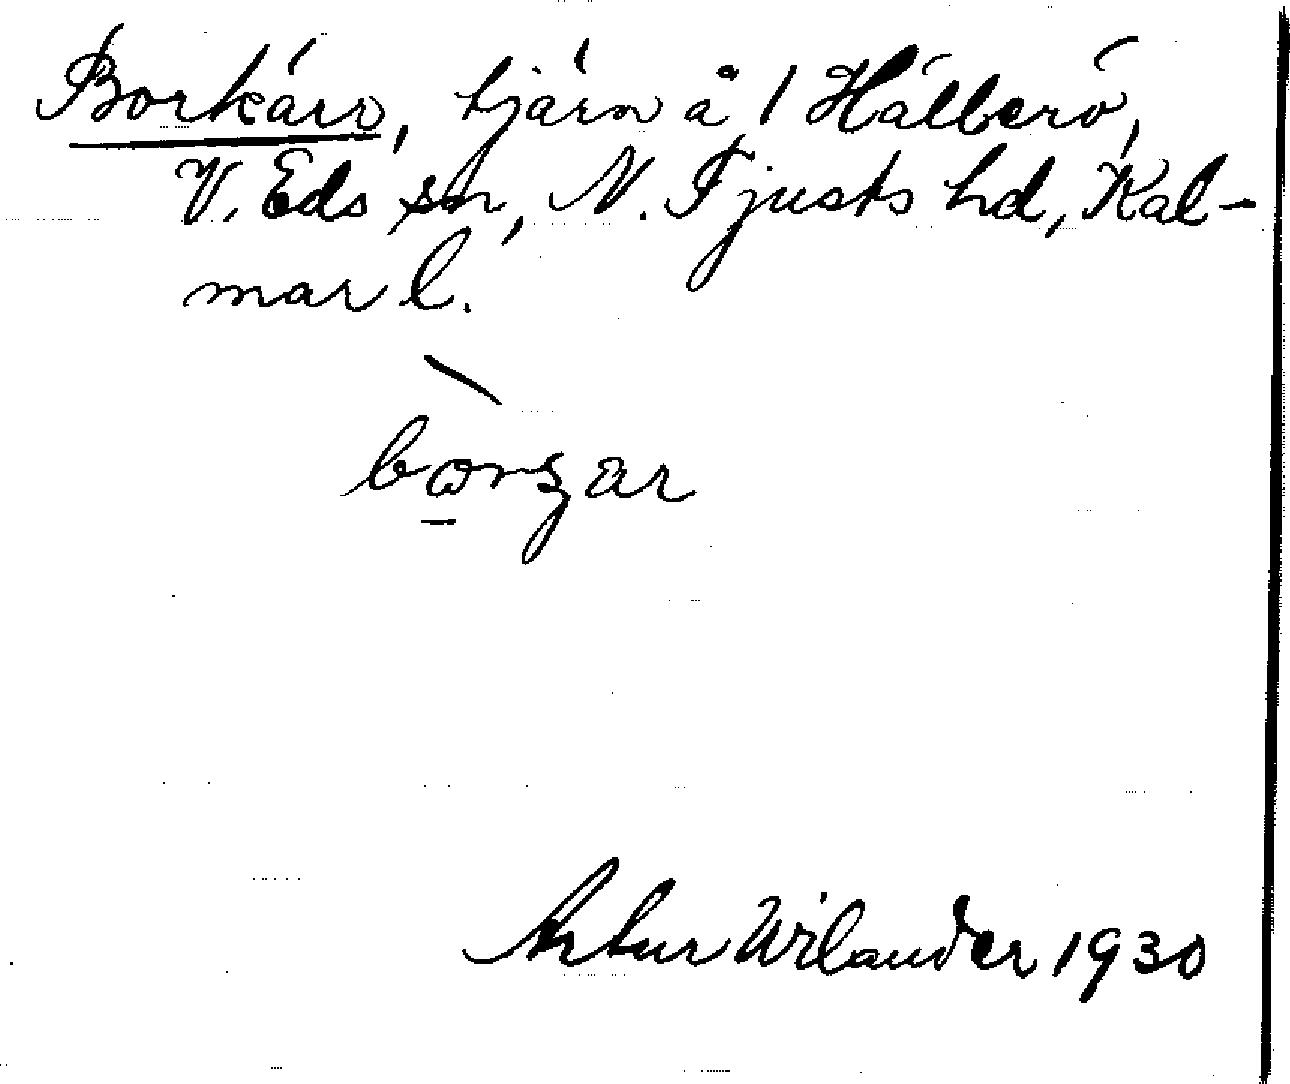 Borkärn, tjärn å 1 Hälberö,
V. Eds sn, N. Tjusts hd, Kal-
mar l.
Artur Wilander 1930